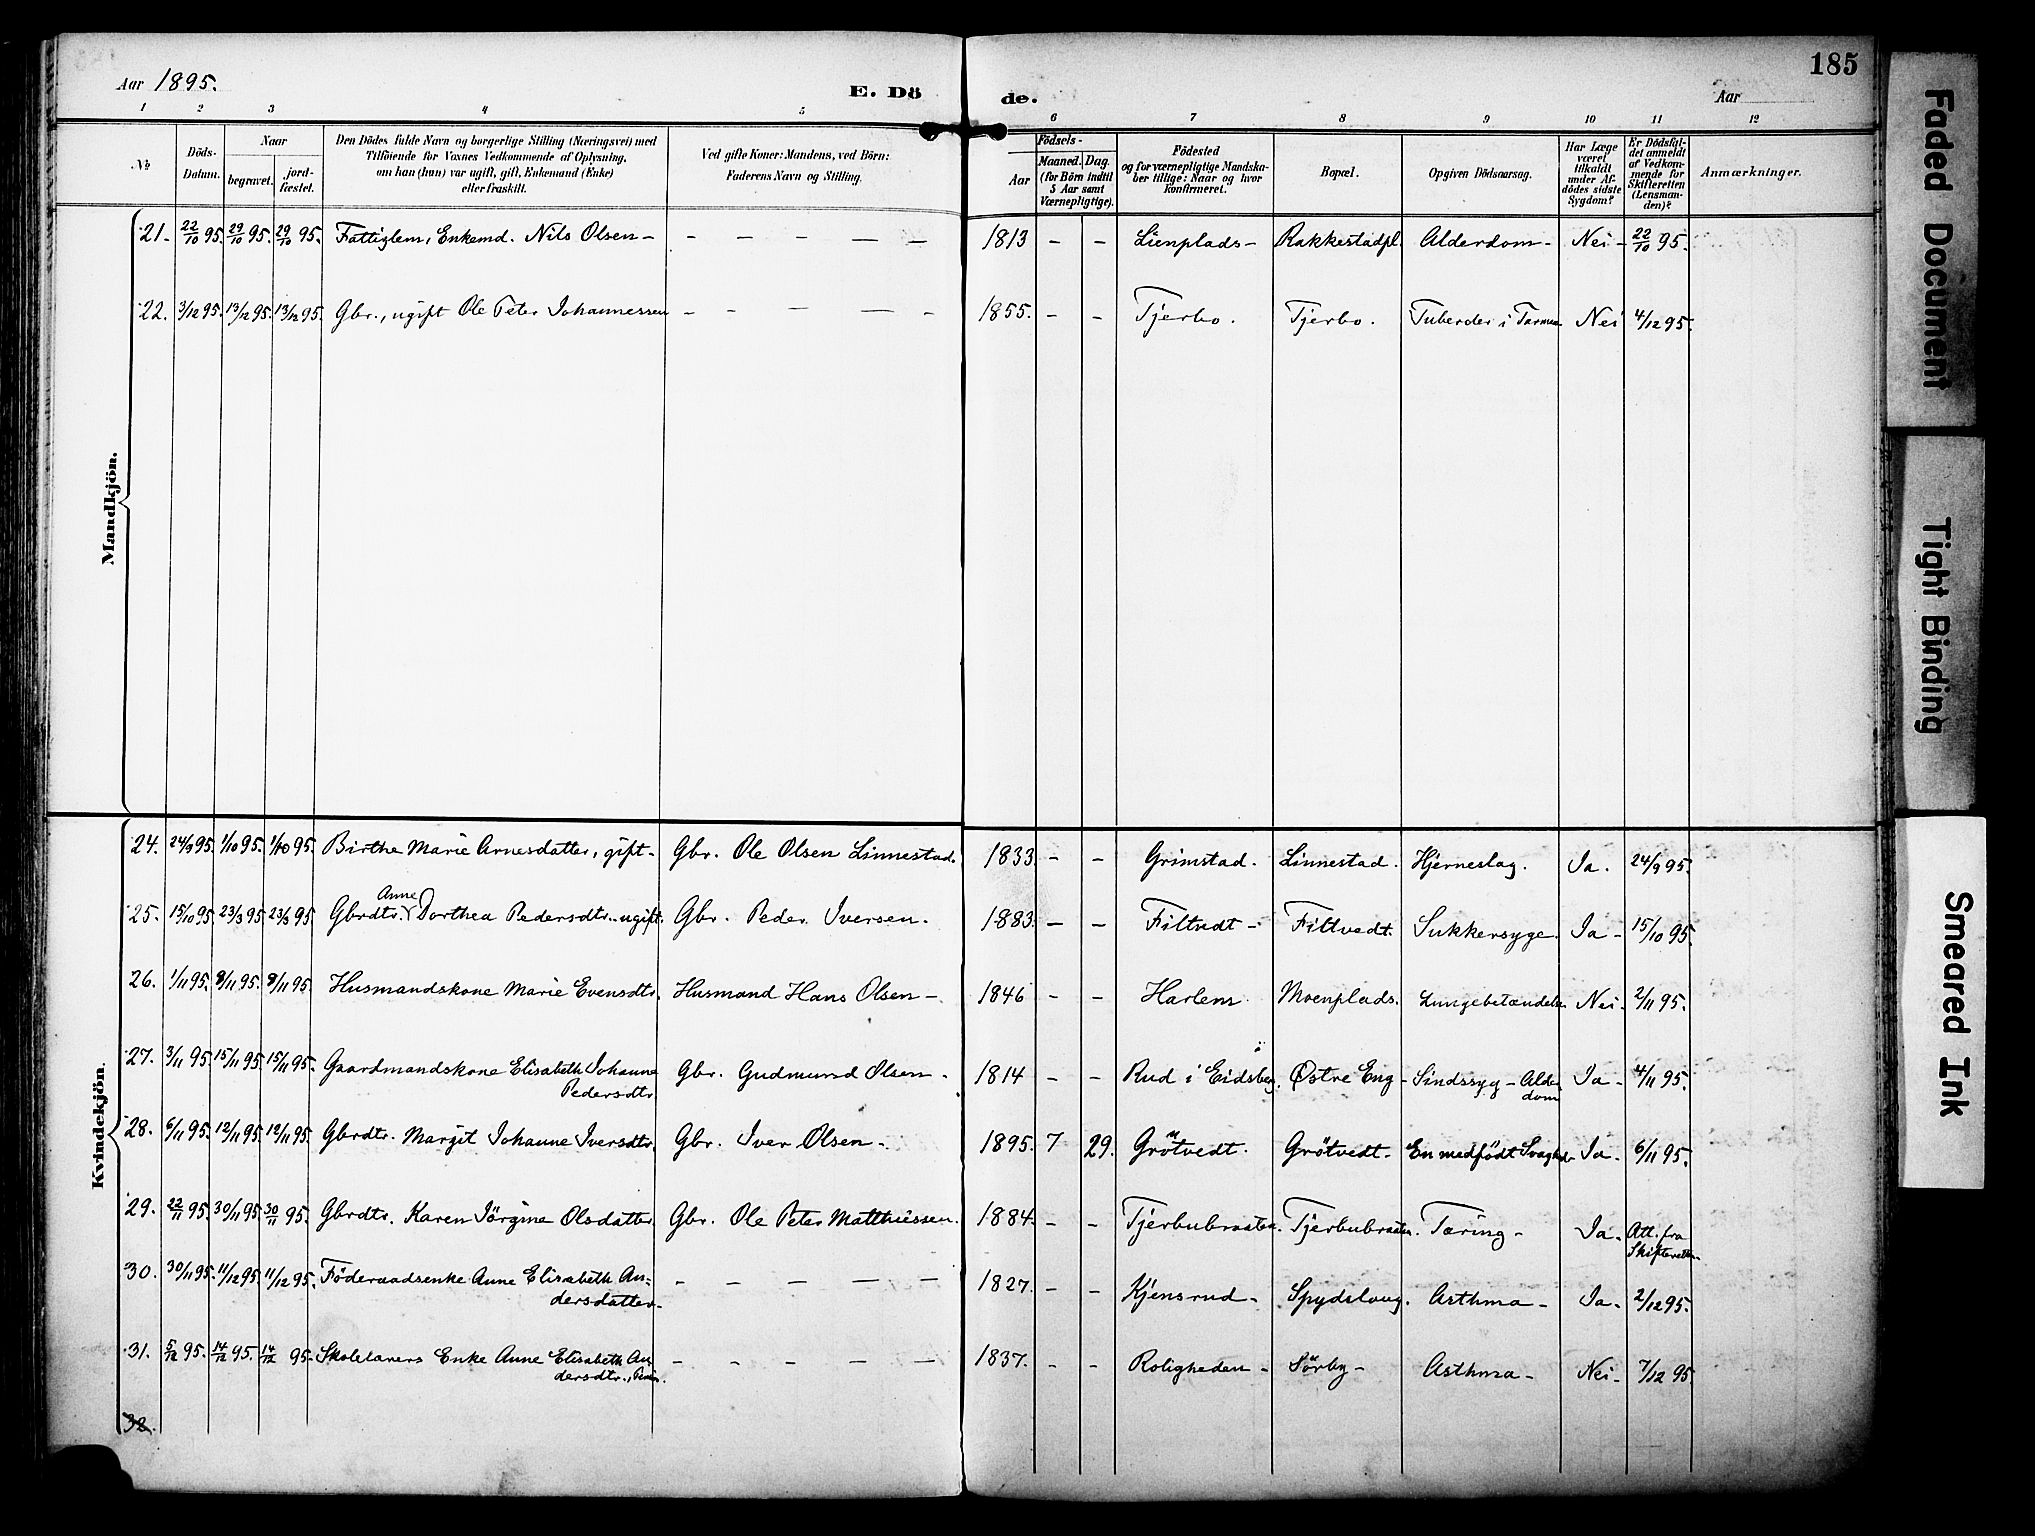 Aar 1895.
E. Dö
de.
Aar
185
1 2 3 4 5 6 7 8 9 10 11 12
No
Döds-
Datum.
Naar
begravet.
jord-
fæstet.
Den Dödes fulde Navn og borgerlige Stilling (Næringsvei) med
Tilföiende for Voxnes Vedkommende af Oplysning,
om han (hun) var ugift, gift, Enkemand (Enke)
eller fraskilt.
Ved gifte Koner: Mandens, ved Börn:
Faderens Navn og Stilling.
Födsels-
Aar
Maaned. Dag.
(for Börn indtil
5 Aar samt
Værnepligtige).
Födested
og for værnepligtige Mandska-
ber tillige: Naar og hvor
konfirmeret.
Bopæl.
Opgiven Dödsaarsag.
Har Læge
været
tilkaldt
under Af-
dödes sidste
Sygdom?
Er Dödsfal-
det anmeldt
af Vedkom-
mende for
Skifteretten
(Lensman-
den)?
Anmærkninger.
Mandkjön.
21. 22/10 95. 29/10 95. 29/10 95. Fattiglem, Enkemd. Nils Olsen – – – – – – 1813 – – Lienplads – Rakkestadpl. Alderdom – Nei – 22/10 95.
22. 3/12 95. 13/12 95. 13/12 95. Gbr., ugift Ole Peter Johannessen – – – – – 1855. – – Tjerbo. Tjerbo. Tuberder i Tarmen Nei 4/12 95.
Kvindekjön.
24. 24/9 95. 1/10 95. 1/10 95. Birthe Marie Arnesdatter, gift – Gbr. Ole Olsen Linnestad. 1833 – – Grimstad. Linnestad. Hjerneslag. Ja. 24/9 95.
Anne
25. 15/10 95. 23/3 95 23/3 95 Gbrdtr. Dorthea Pedersdtr. ugift. Gbr. Peder Iversen. 1883. – – Filtvedt – Filtvedt. Sukkersyge. Ja – 15/10 95.
26. 1/11 95. 9/11 95. 9/11 95. Husmandskone Marie Evensdtr. Husmand Hans Olsen – 1846 – – Harlem. Moenplads. Lungebetændelse Nei. 2/11 95.
27. 3/11 95. 15/11 95. 15/11 95. Gaardmandskone Elisabeth Johanne
Pedersdtr. Gbr. Gudmund Olsen. 1814 – – Rud i Eidsberg. Østre Eng – Sindssyg – Alder
dom Ja – 4/11 95.
28. 6/11 95. 12/11 95. 12/11 95. Gbrdtr. Margit Johanne Iversdtr. Gbr. Iver Olsen – 1895. 7 29. Grötvedt. Grötvedt. En medfödt Svaghed Ja. 6/11 95.
29. 22/11 95. 30/11 95. 30/11 95. Gbrdtr. Karen Jörgine Olsdatter. Gbr. Ole Peter Matthiessen. 1884. – – Tjerbubraaten. Tjerbubraaten. Tæring – Ja. Att. fra
Skifteretten
30. 30/11 95. 11/12 95. 11/12 95. Föderaadsenke Anne Elisabeth An-
dersdatter. – – – – – 1827. – – Kjensrud – Spydslaug. Asthma – Ja. 2/12 95.
31. 5/12 95. 14/12 95. 14/12 95. Skolelærers Enke Anne Elisabeth An-
dersdtr. – – – – – 1837. – – Roligheden – Sörby – Asthma – Nei – 7/12 95.
32.
Faded Document
Tight Binding
Smeared Ink